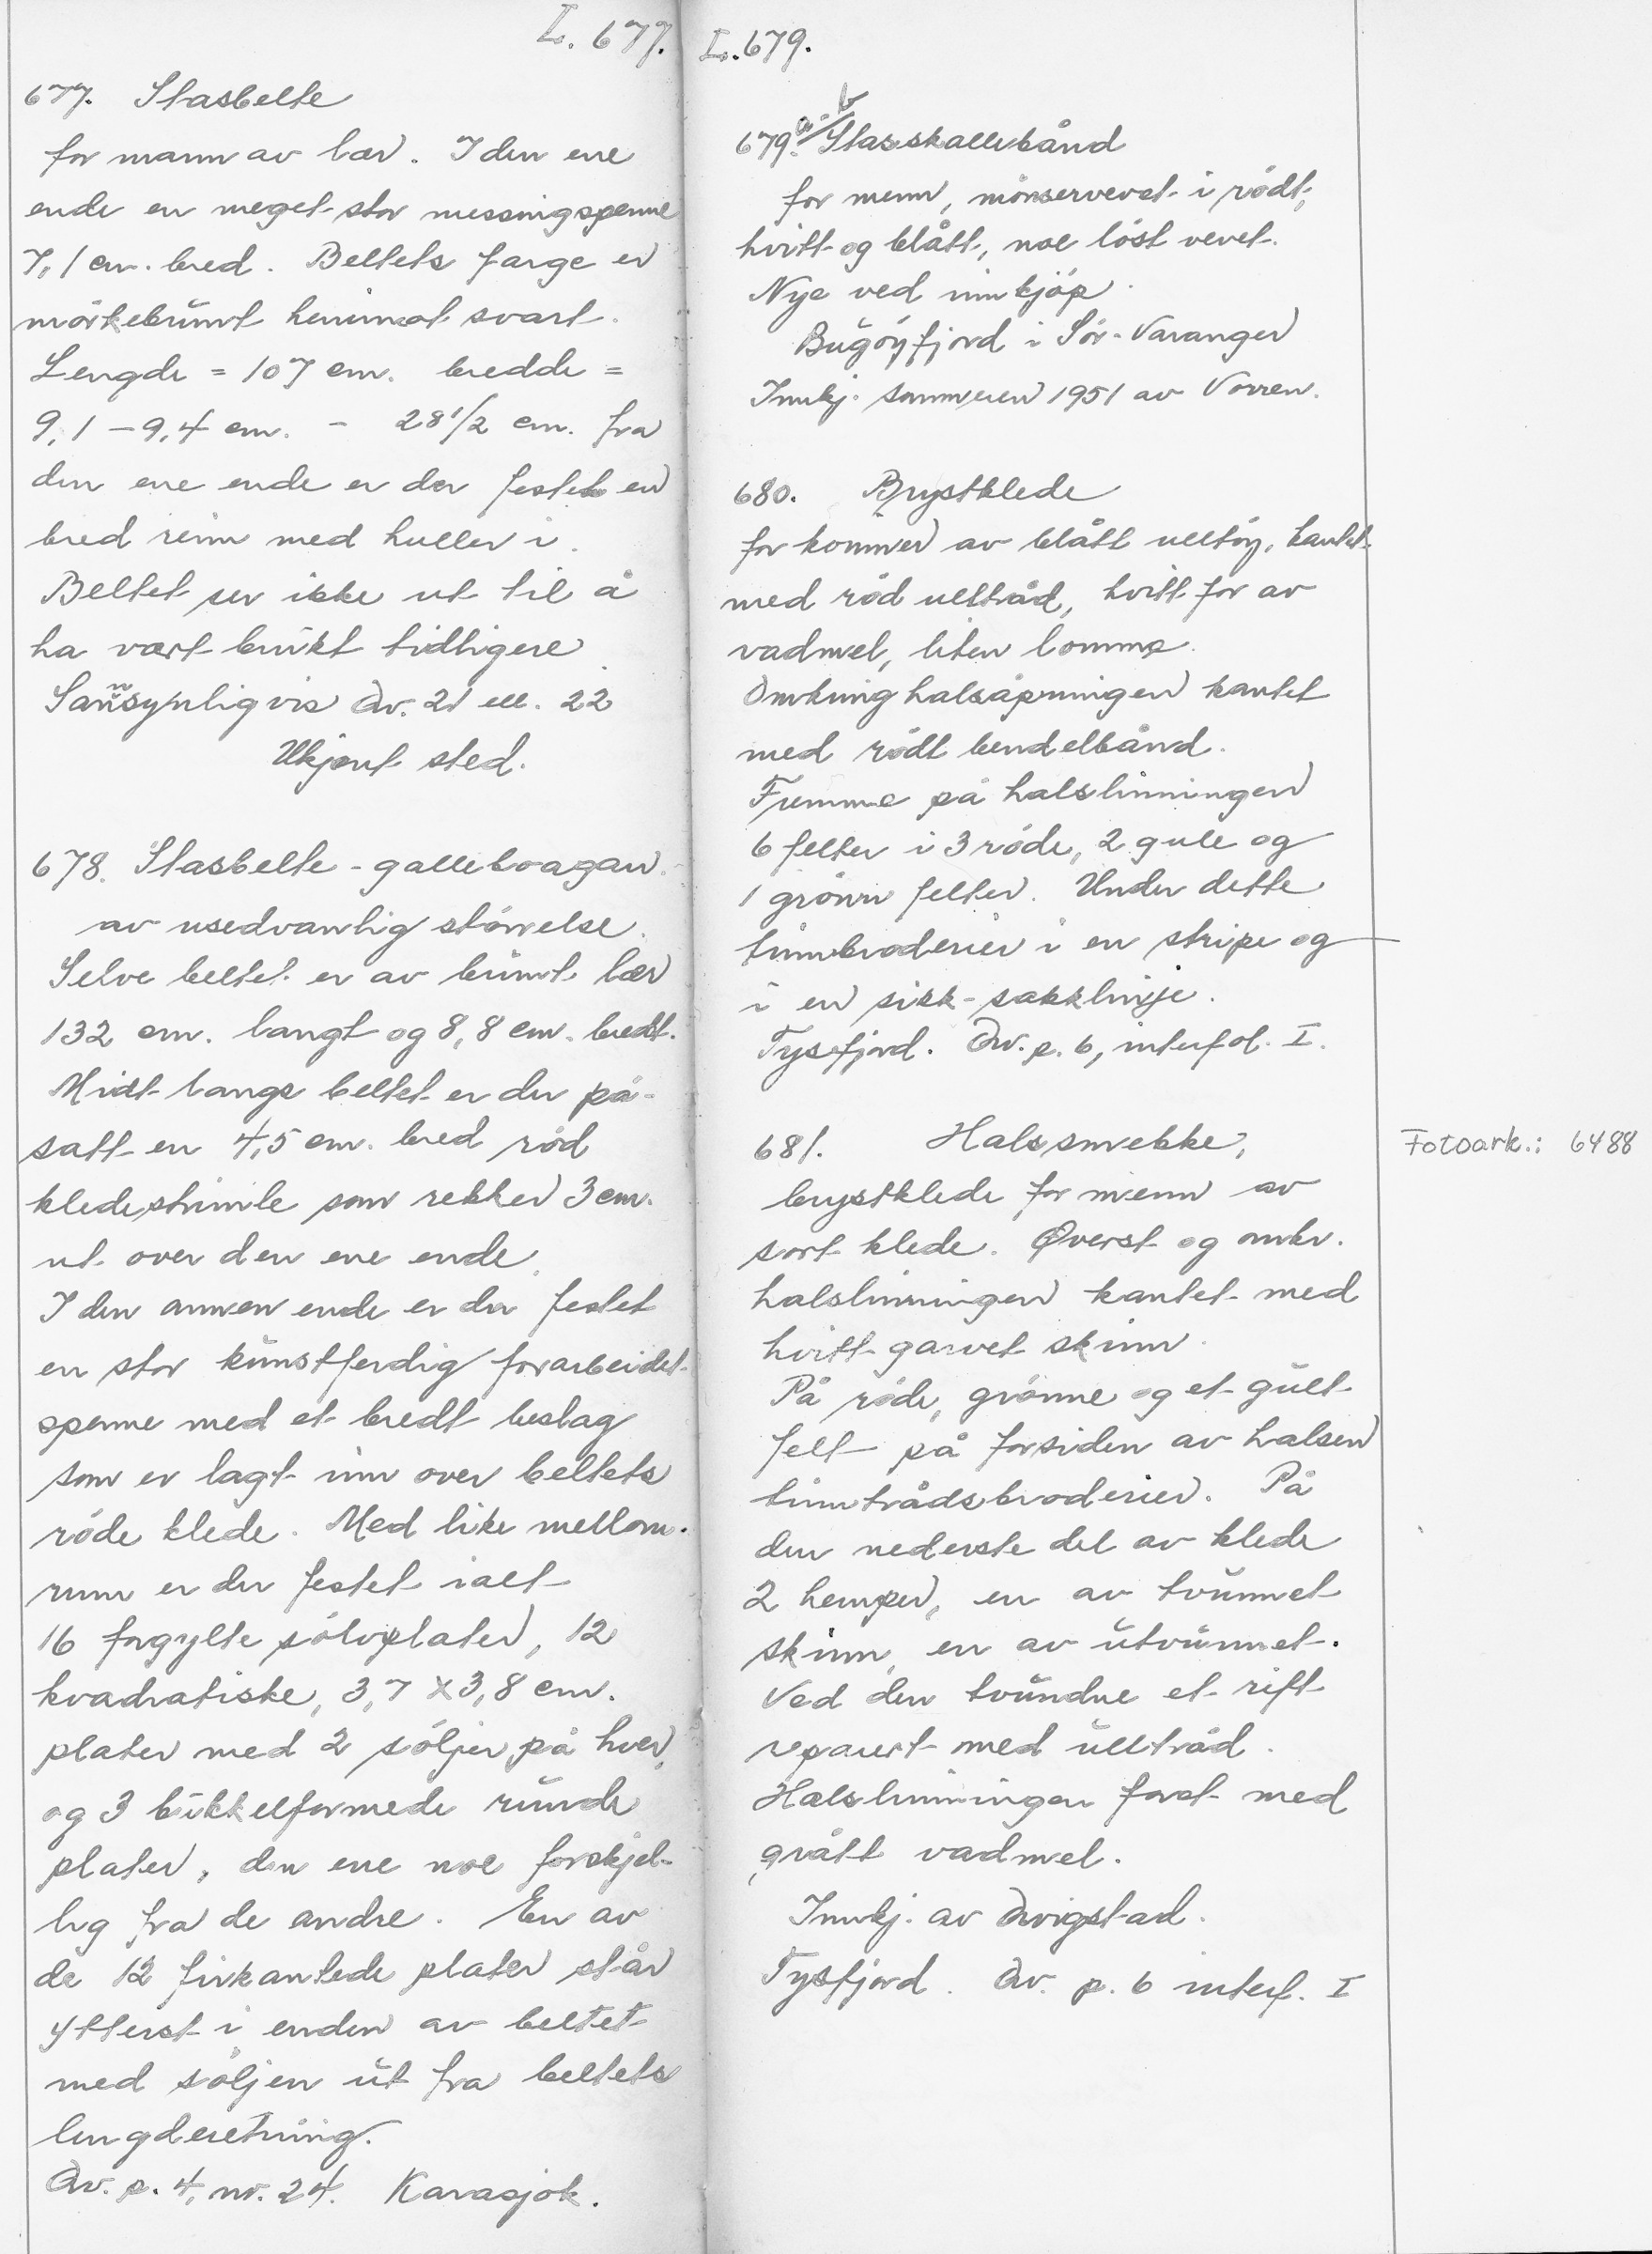 L. 677.
677. Stasbelte
for mann av lær. I den ene
ende en meget stor messingspenne
7,1 cm. bred. Beltets farge er
mörkebrunt henimot svart.
Lengde = 107 cm. bredde =
9,1 - 9,4 cm. - 28 1/2 cm. fra
den ene ende er der festet en
bred reim med huller i.
Beltet ser ikke ut til å
ha vært brukt tidligere.
Sannsynligvis Qv. 21 ell. 22
Ukjent sted.
678. Stasbelte - galleboagan.
av usedvanlig störrelse.
Selve beltet er av brunt lær
132 cm. langt og 8,8 cm. bredt.
Midt langs beltet er der på-
satt en 4,5 cm. bred röd
kledestrimle som rekker 3 cm.
ut over den ene ende.
I den annen ende er der festet
en stor kunstferdig forarbeidet
spenne med et bredt beslag
som er lagt inn over beltets
röde klede. Med like mellom-
rum er der festet ialt
16 forgylte sölvplater, 12
kvadratiske, 3,7 x 3,8 cm.
plater med 2 söljer på hver,
og 3 bukkelformede runde
plater, den ene noe forskjel-
lig fra de andre. En av
de 12 firkantede plater står
ytterst i enden av beltet
med söljen ut fra beltets
lengderetning.
Qv. p. 4, nr. 24. Karasjok.
L. 679.
679 a/b. Stasskallebånd
for menn, mönservevet i rödt,
hvitt og blått, noe löst vevet.
Nye ved innkjöp.
Bugöyfjord i Sör-Varanger
Innkj. sommeren 1951 av Vorren.
680. Brystklede
for kvinner av blått ulltöy, kantet
med röd ulltråd, hvitt for av
vadmel, liten lomme.
Omkring halsåpningen kantet
med rödt bendelbånd.
Fremme på halslinningen
6 felter i 3 röde, 2 gule og
1 grönn felter. Under dette
tinnbroderier i en stripe og
i en sikk-sakklinje.
Tysfjord. Qv. p. 6, interfol. I.
681. Halssmekke,
brystklede for menn av
sort klede. Øverst og omkr.
halslinningen kantet med
hvitt garvet skinn.
På röde, grönne og et gult
felt på forsiden av halsen
tinntrådsbroderier. På
den nederste del av klede
2 hemper, en av tvunnet
skinn, en av utvunnet.
Ved den tvundne et rift
reparert med ulltråd.
Halslinningen foret med
grått vadmel.
Innkj. av Qvigstad.
Tysfjord. Qv. p. 6 interf. I
Fotoark.: 6488